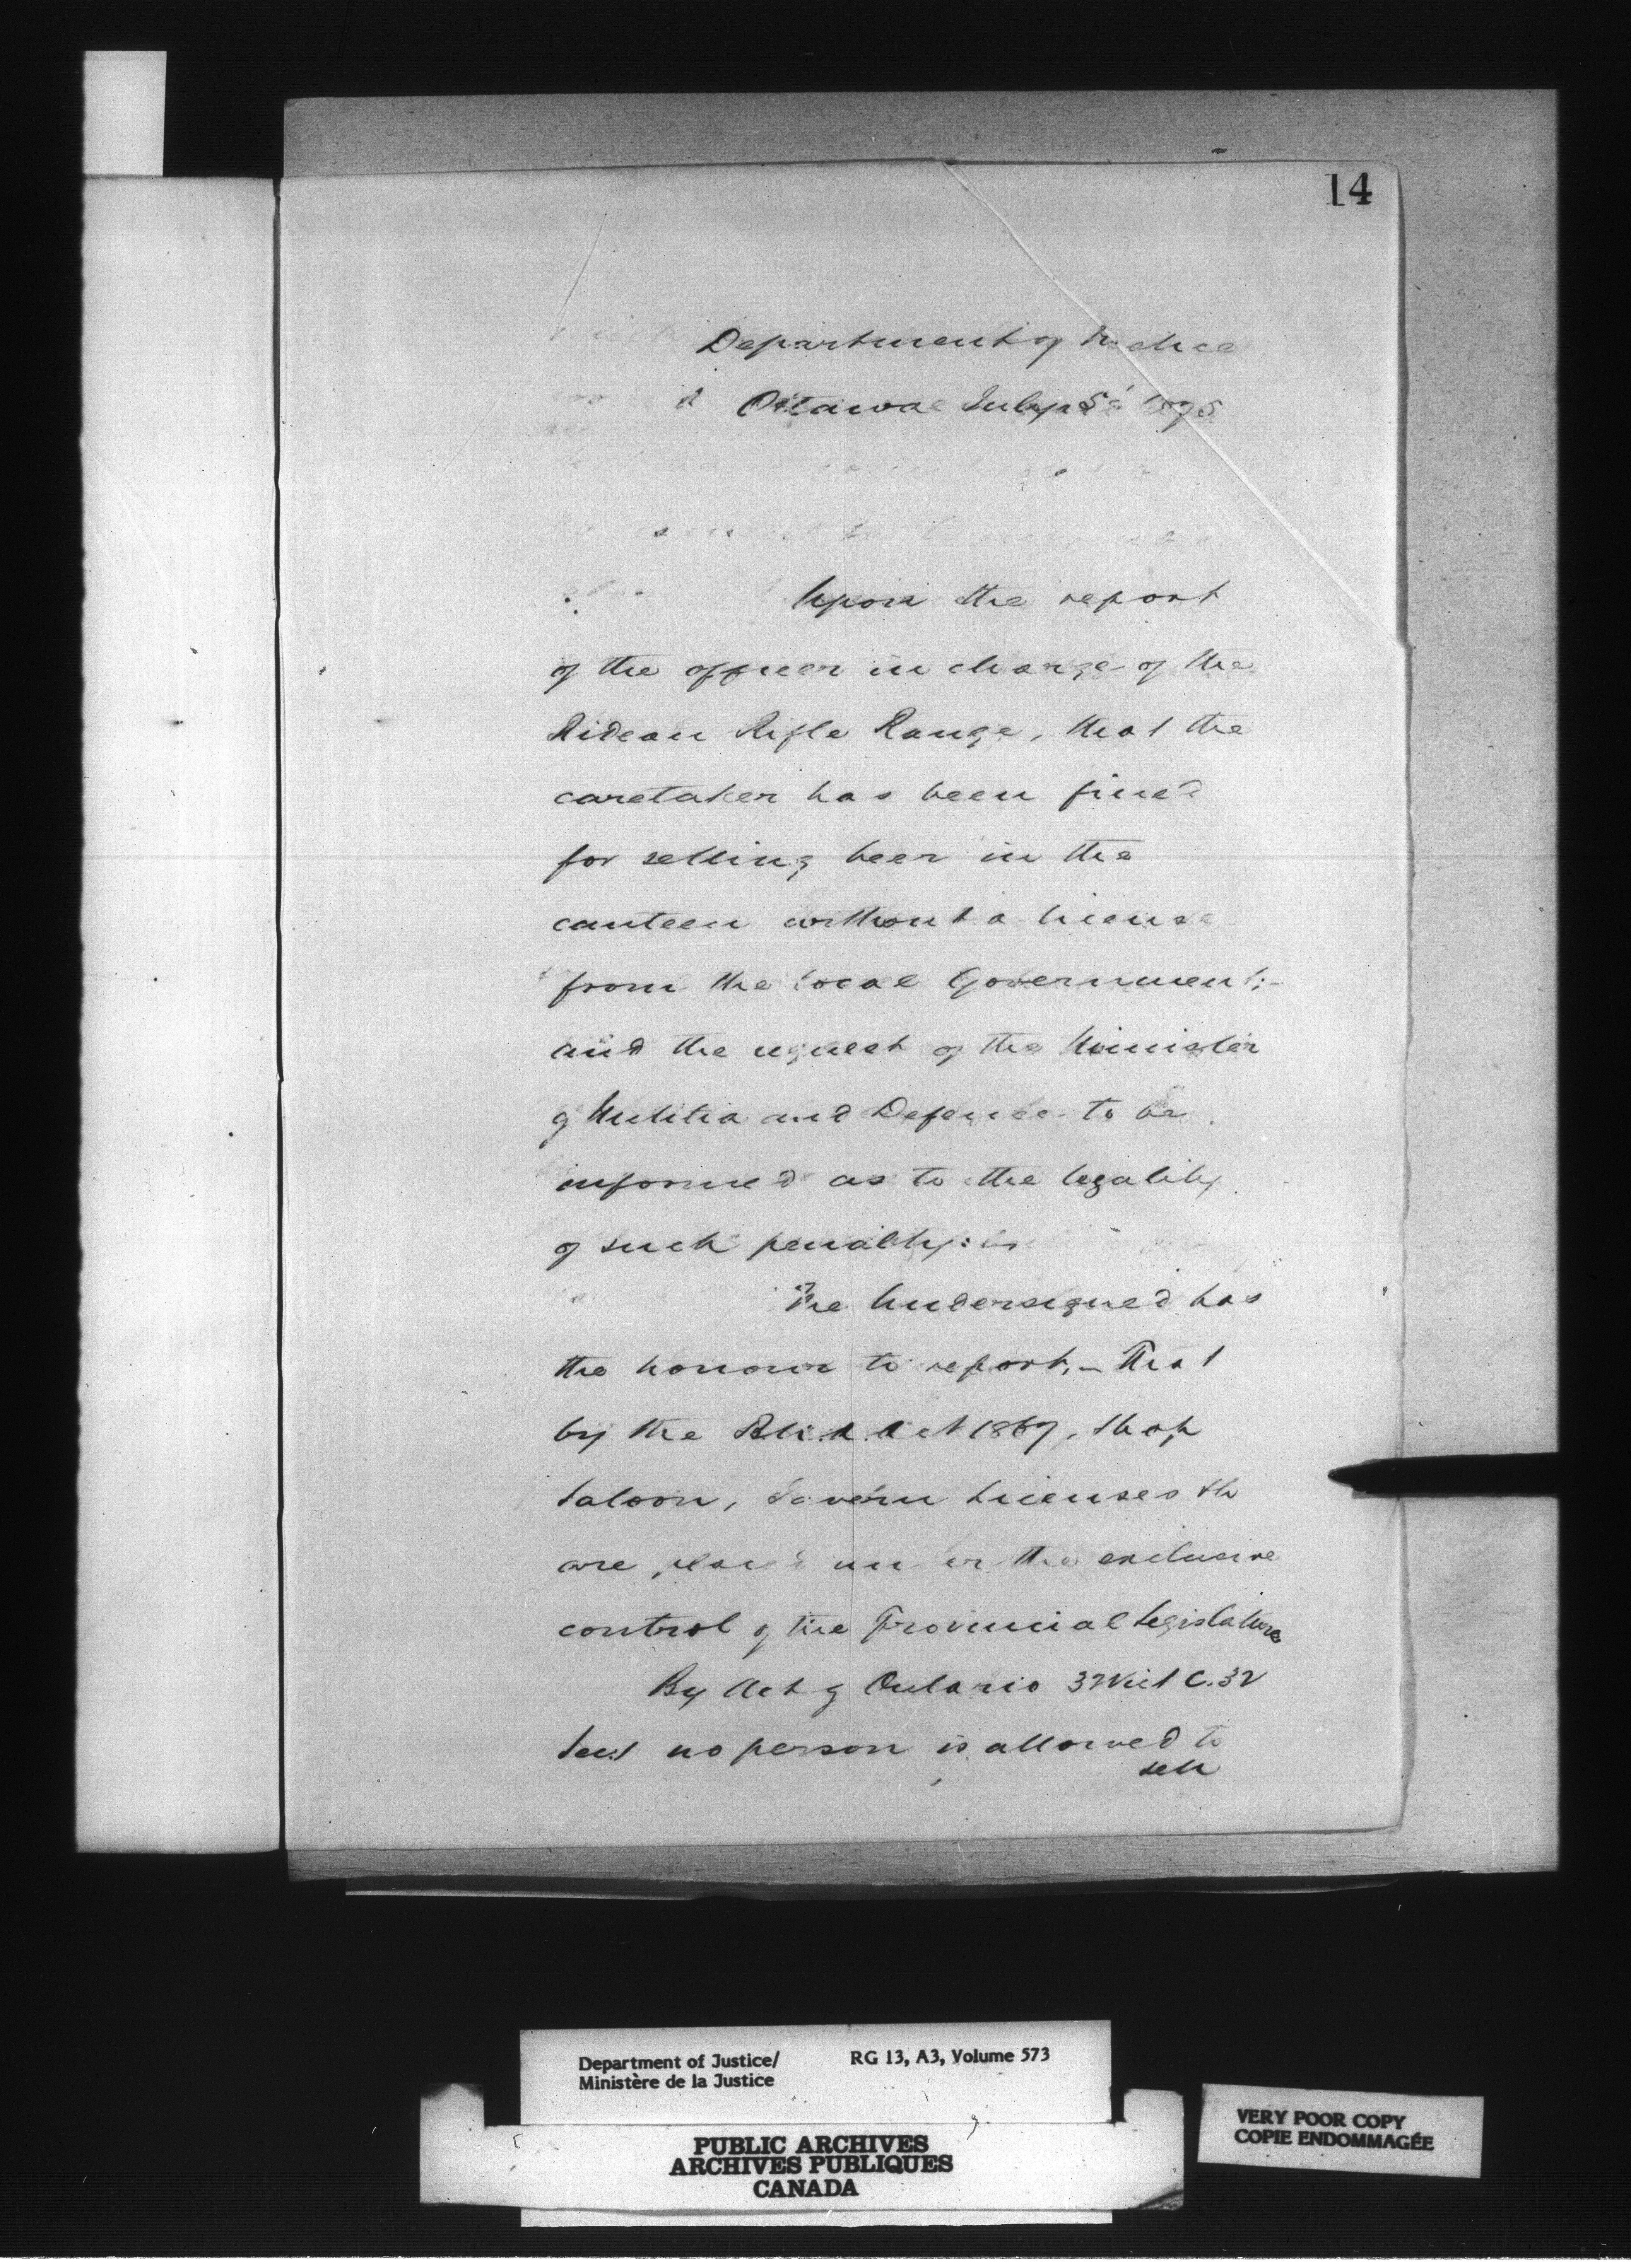 14
Department of Justice
Ottawa July 5' 1875
Upon the report
of the officer in charge of the
Rideau Rifle Range, that the
caretaker has been fined
for selling beer in the
canteen without a license
from the local Government;-
and the request of the Minister
of Militia and Defence to be
informed as to the legality
of such penalty:
The Undersigned has
the honour to report,- That
by the B.N.A. Act 1867, Shop
Saloon, Tavern Licenses &c
are placed under the exclusive
control of the Provincial Legislatures
By Act of Ontario 37 Vict C. 32
Sec. no person is allowed to
sell
Department of Justice/ RG 13, A3, Volume 573
Ministère de la Justice
PUBLIC ARCHIVES
ARCHIVES PUBLIQUES
CANADA
VERY POOR COPY
COPIE ENDOMMAGÉE